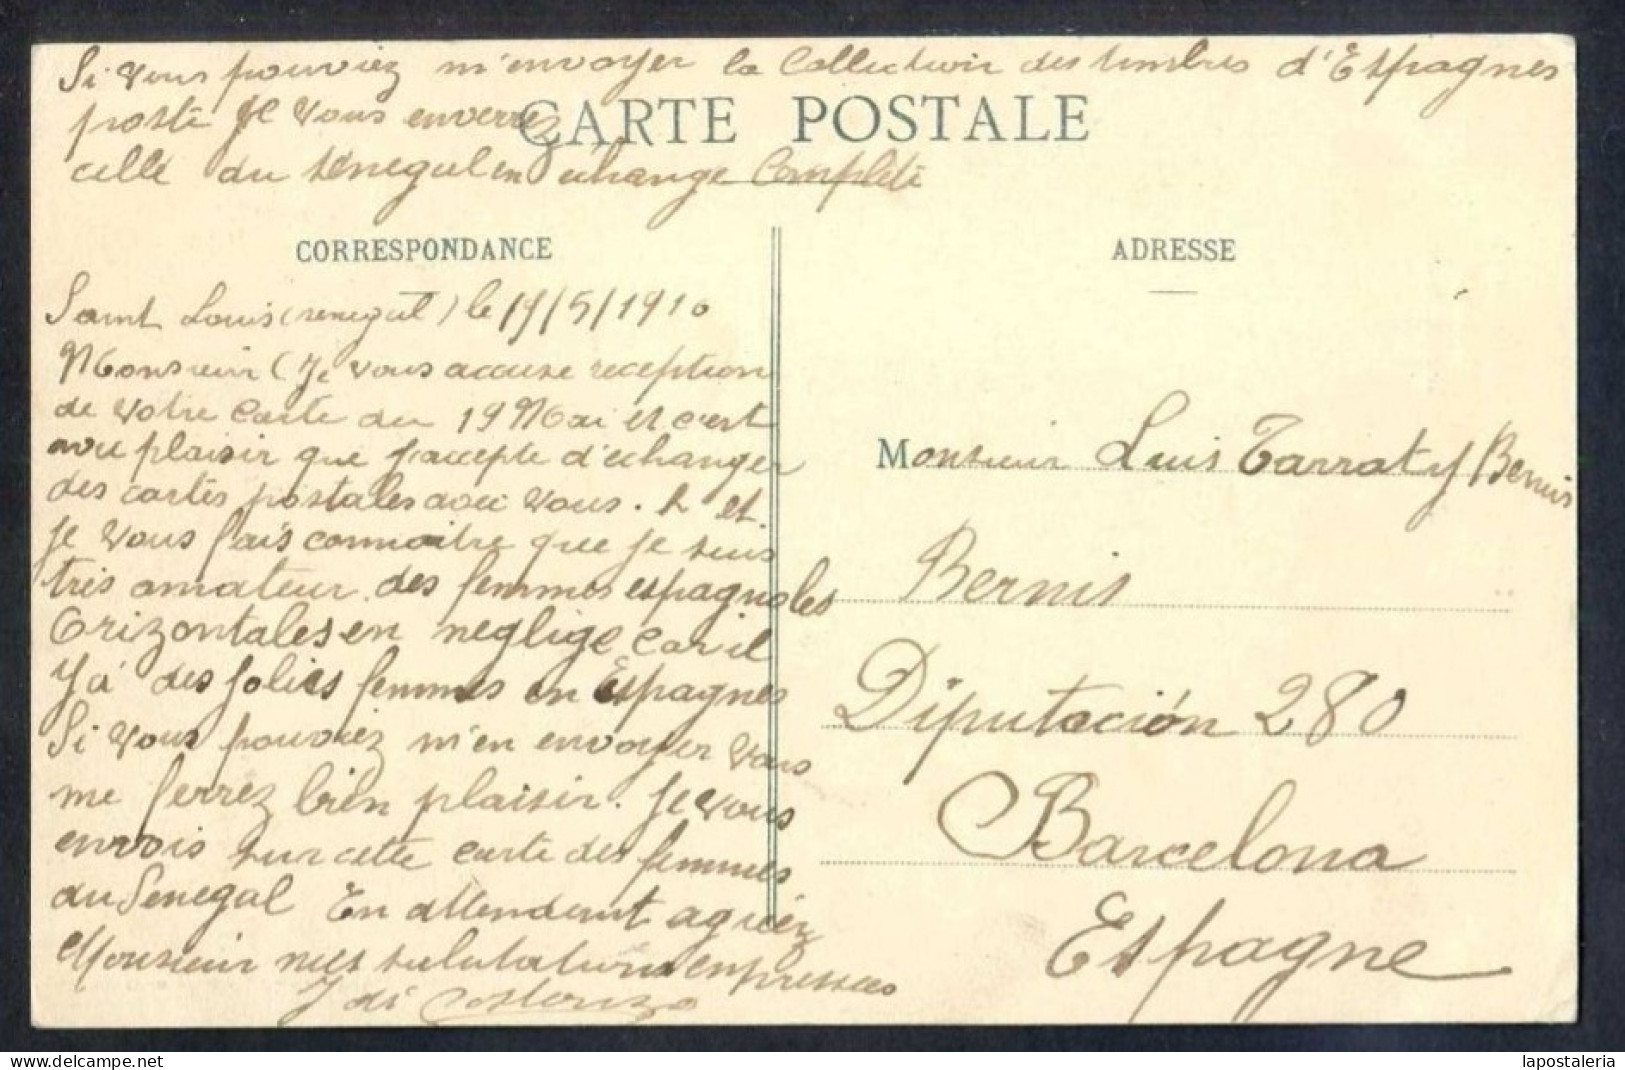 Si vous pouviez m'envoyer la Collection des timbres d'Espagnes
poste Je vous enverrez
CARTE POSTALE
celle du senegal en échange Complete
CORRESPONDANCE
Saint Louis (senegal) le 19/5/1910
Monsieur (Je vous accuse reception
de votre Carte du 19 Mai et c'est
avec plaisir que j'accepte d'echanger
des cartes postales avec vous. et
je vous fais connaitre que je suis
tres amateur des femmes espagnoles
Orizontales en neglige Car il
Y a des jolies femmes en Espagnes
Si vous pouviez m'en envoyer vous
me ferrez bien plaisir. Je vous
envois sur cette carte des femmes
du Senegal En attendant agreez
Monsieur mes salutations empressees
J di
ADRESSE
Monsieur Luis Tarrat y Bernis
Bernis
Diputación 280
Barcelona
Espagne
delcampe.net
lapostaleria